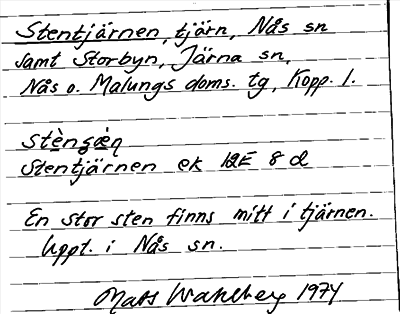 Stentjärnen, tjärn, Nås sn
samt Storbyn, Järna sn,
Nås o. Malungs doms. tg, Kopp. l.
Stentjärnen ek 12E 8d
En stor sten finns mitt i tjärnen.
Uppt. i Nås sn.
Mats Wahlberg 1974